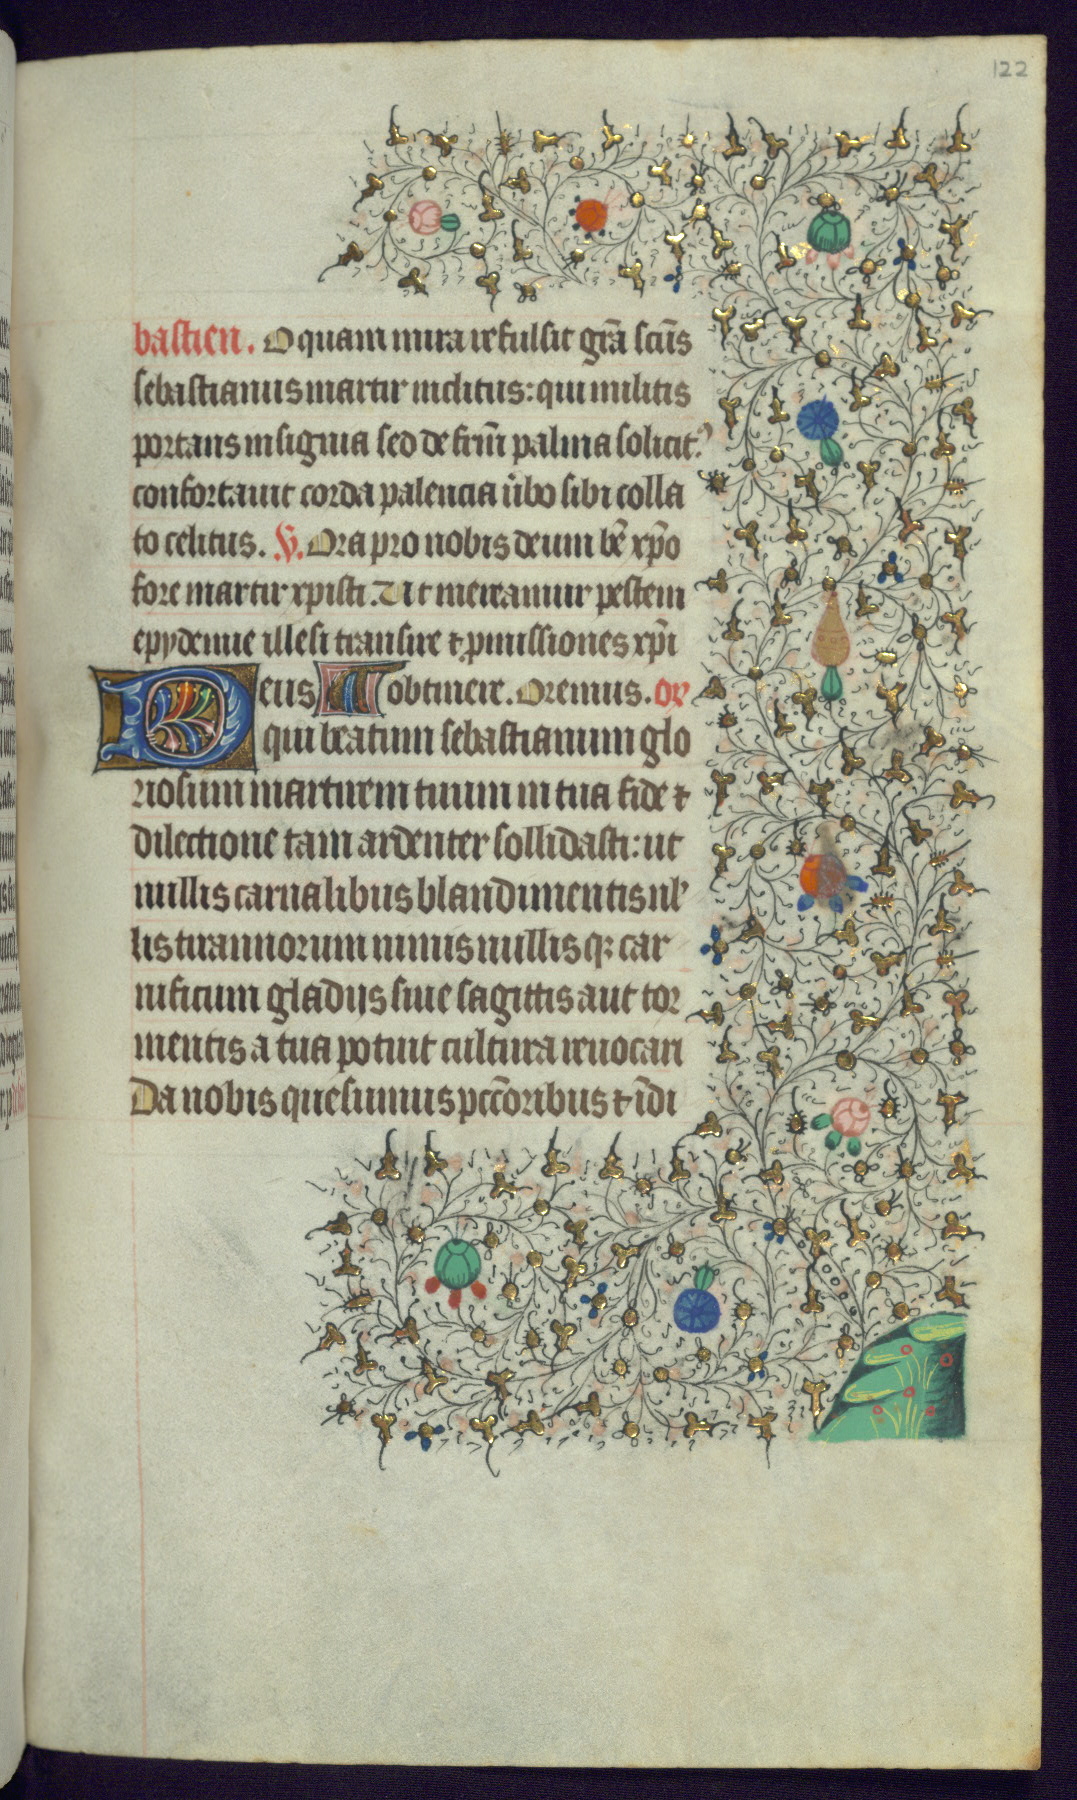 122
bastien. O quam mira refulsit gr̄a sc̄us
sebastianus martir inclitus: qui militis
portans insignia sed de frm̄ palma solicit᷒
confortauit corda palencia u̇bo sibi colla
to celitus. V̸. Ora pro nobis deum be᷑ xp̄o
fore martir xpisti. Ut mereamur pestem
epydemie illesi transire ⁊ ꝓmissiones xp̄i
obtinere. Oremus. or̄
Deus qui beatum sebastianum glo
riosum martirem tuum in tua fide ⁊
dilectione tam ardenter sollidasti: ut
nullis carnalibus blandimentis nl̓
lis tirannorum minis nullis qꝫ car
nificum gladijs siue sagittis aut tor
mentis a tua potuit cultura reuocari
Da nobis quesumus pcc̄oribus ⁊ īdi